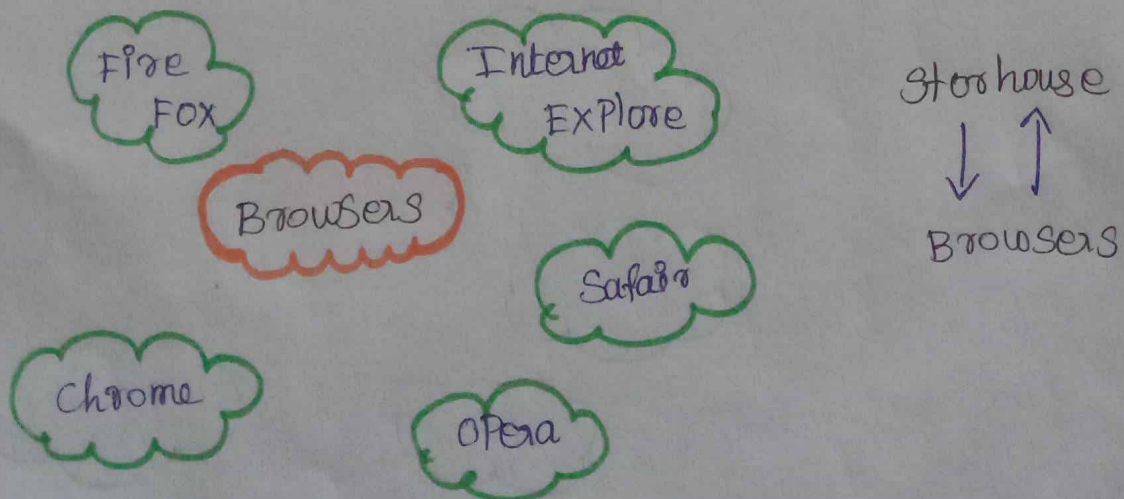 Fire
Fox
Internet
Explore
Storhouse
Browsers
Browsers
Safair
Chrome
Opera